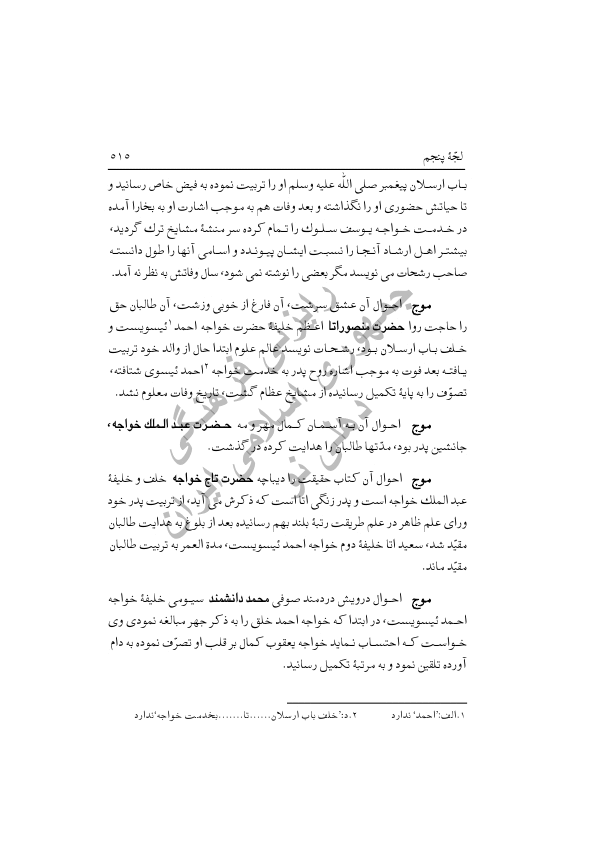 لجّهٔ پنجم ۵۱۵
باب ارسلان پیغمبر صلی الله علیه وسلم او را تربیت نموده به فیض خاص رسانید و
تا حیاتش حضوری او را نگذاشته و بعد وفات هم به موجب اشارت او به بخارا آمده
در خدمت خواجه یوسف سلوک را تمام کرده سر منشهٔ مشایخ ترک گردید،
بیشتر اهل ارشاد آنجا را نسبت ایشان پیوندد و اسامی آنها را طول دانسته
صاحب رشحات می نویسد مگر بعضی را نوشته نمی شود، سال وفاتش به نظر نه آمد.
موج احوال آن عشق سرشت، آن فارغ از خوبی وزشت، آن طالبان حق
را حاجت روا حضرت منصوراتا اعظم خلیفهٔ حضرت خواجه احمد۱ ئیسویست و
خلف باب ارسلان بود، رشحات نویسد عالم علوم ابتدا حال از والد خود تربیت
یافته بعد فوت به موجب اشاره روح پدر به خدمت خواجه۲ احمد ئیسوی شتافته،
تصوّف را به پایهٔ تکمیل رسانیده از مشایخ عظام گشت، تاریخ وفات معلوم نشد.
موج احوال آن به آسمان کمال مهر و مه حضرت عبد الملک خواجه،
جانشین پدر بود، مدّتها طالبان را هدایت کرده در گذشت.
موج احوال آن کتاب حقیقت را دیباچه حضرت تاج خواجه خلف و خلیفهٔ
عبد الملک خواجه است و پدر زنگی اتا است که ذکرش می آید، از تربیت پدر خود
ورای علم ظاهر در علم طریقت رتبهٔ بلند بهم رسانیده بعد از بلوغ به هدایت طالبان
مقیّد شد، سعید اتا خلیفهٔ دوم خواجه احمد ئیسویست، مدة العمر به تربیت طالبان
مقیّد ماند.
موج احوال درویش دردمند صوفی محمد دانشمند سیومی خلیفهٔ خواجه
احمد ئیسویست، در ابتدا که خواجه احمد خلق را به ذکر جهر مبالغه نمودی وی
خواست که احتساب نماید خواجه یعقوب کمال بر قلب او تصرّف نموده به دام
آورده تلقین نمود و به مرتبهٔ تکمیل رسانید.
۱.الف:'احمد' ندارد ۲.د:'خلف باب ارسلان......تا.......بخدمت خواجه'ندارد
رایزنی فرهنگی
جمهوری اسلامی ایران
دهلی نو